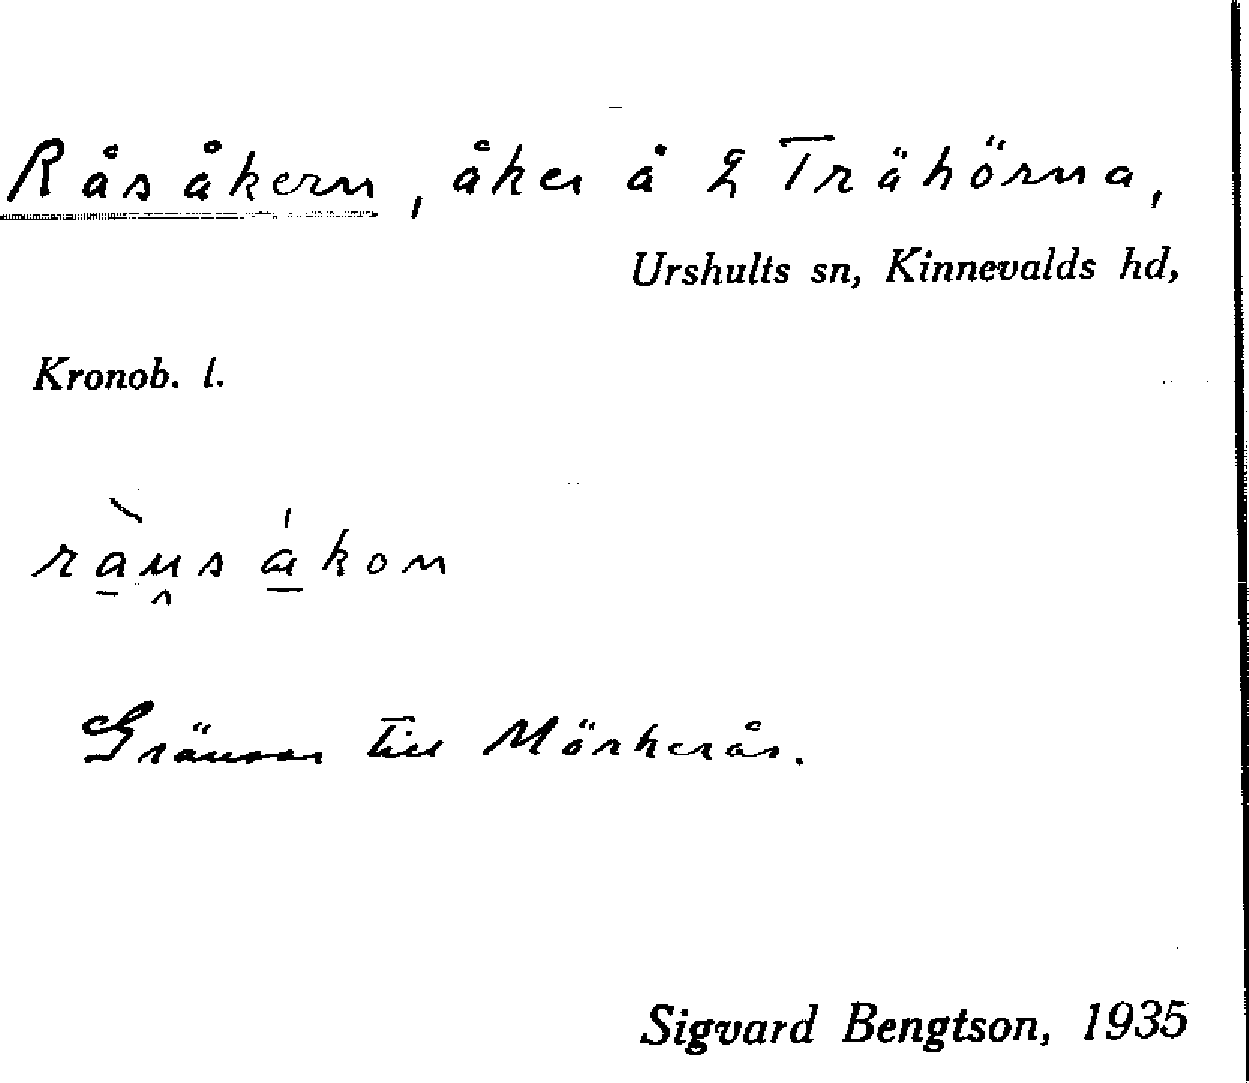 Råsåkern, åker å 2 Trähörna,
Urshults sn, Kinnevalds hd,
Kronob. l.
rà̱u̯sá̱kon
Gränsar till Mörkerås.
Sigvard Bengtson, 1935